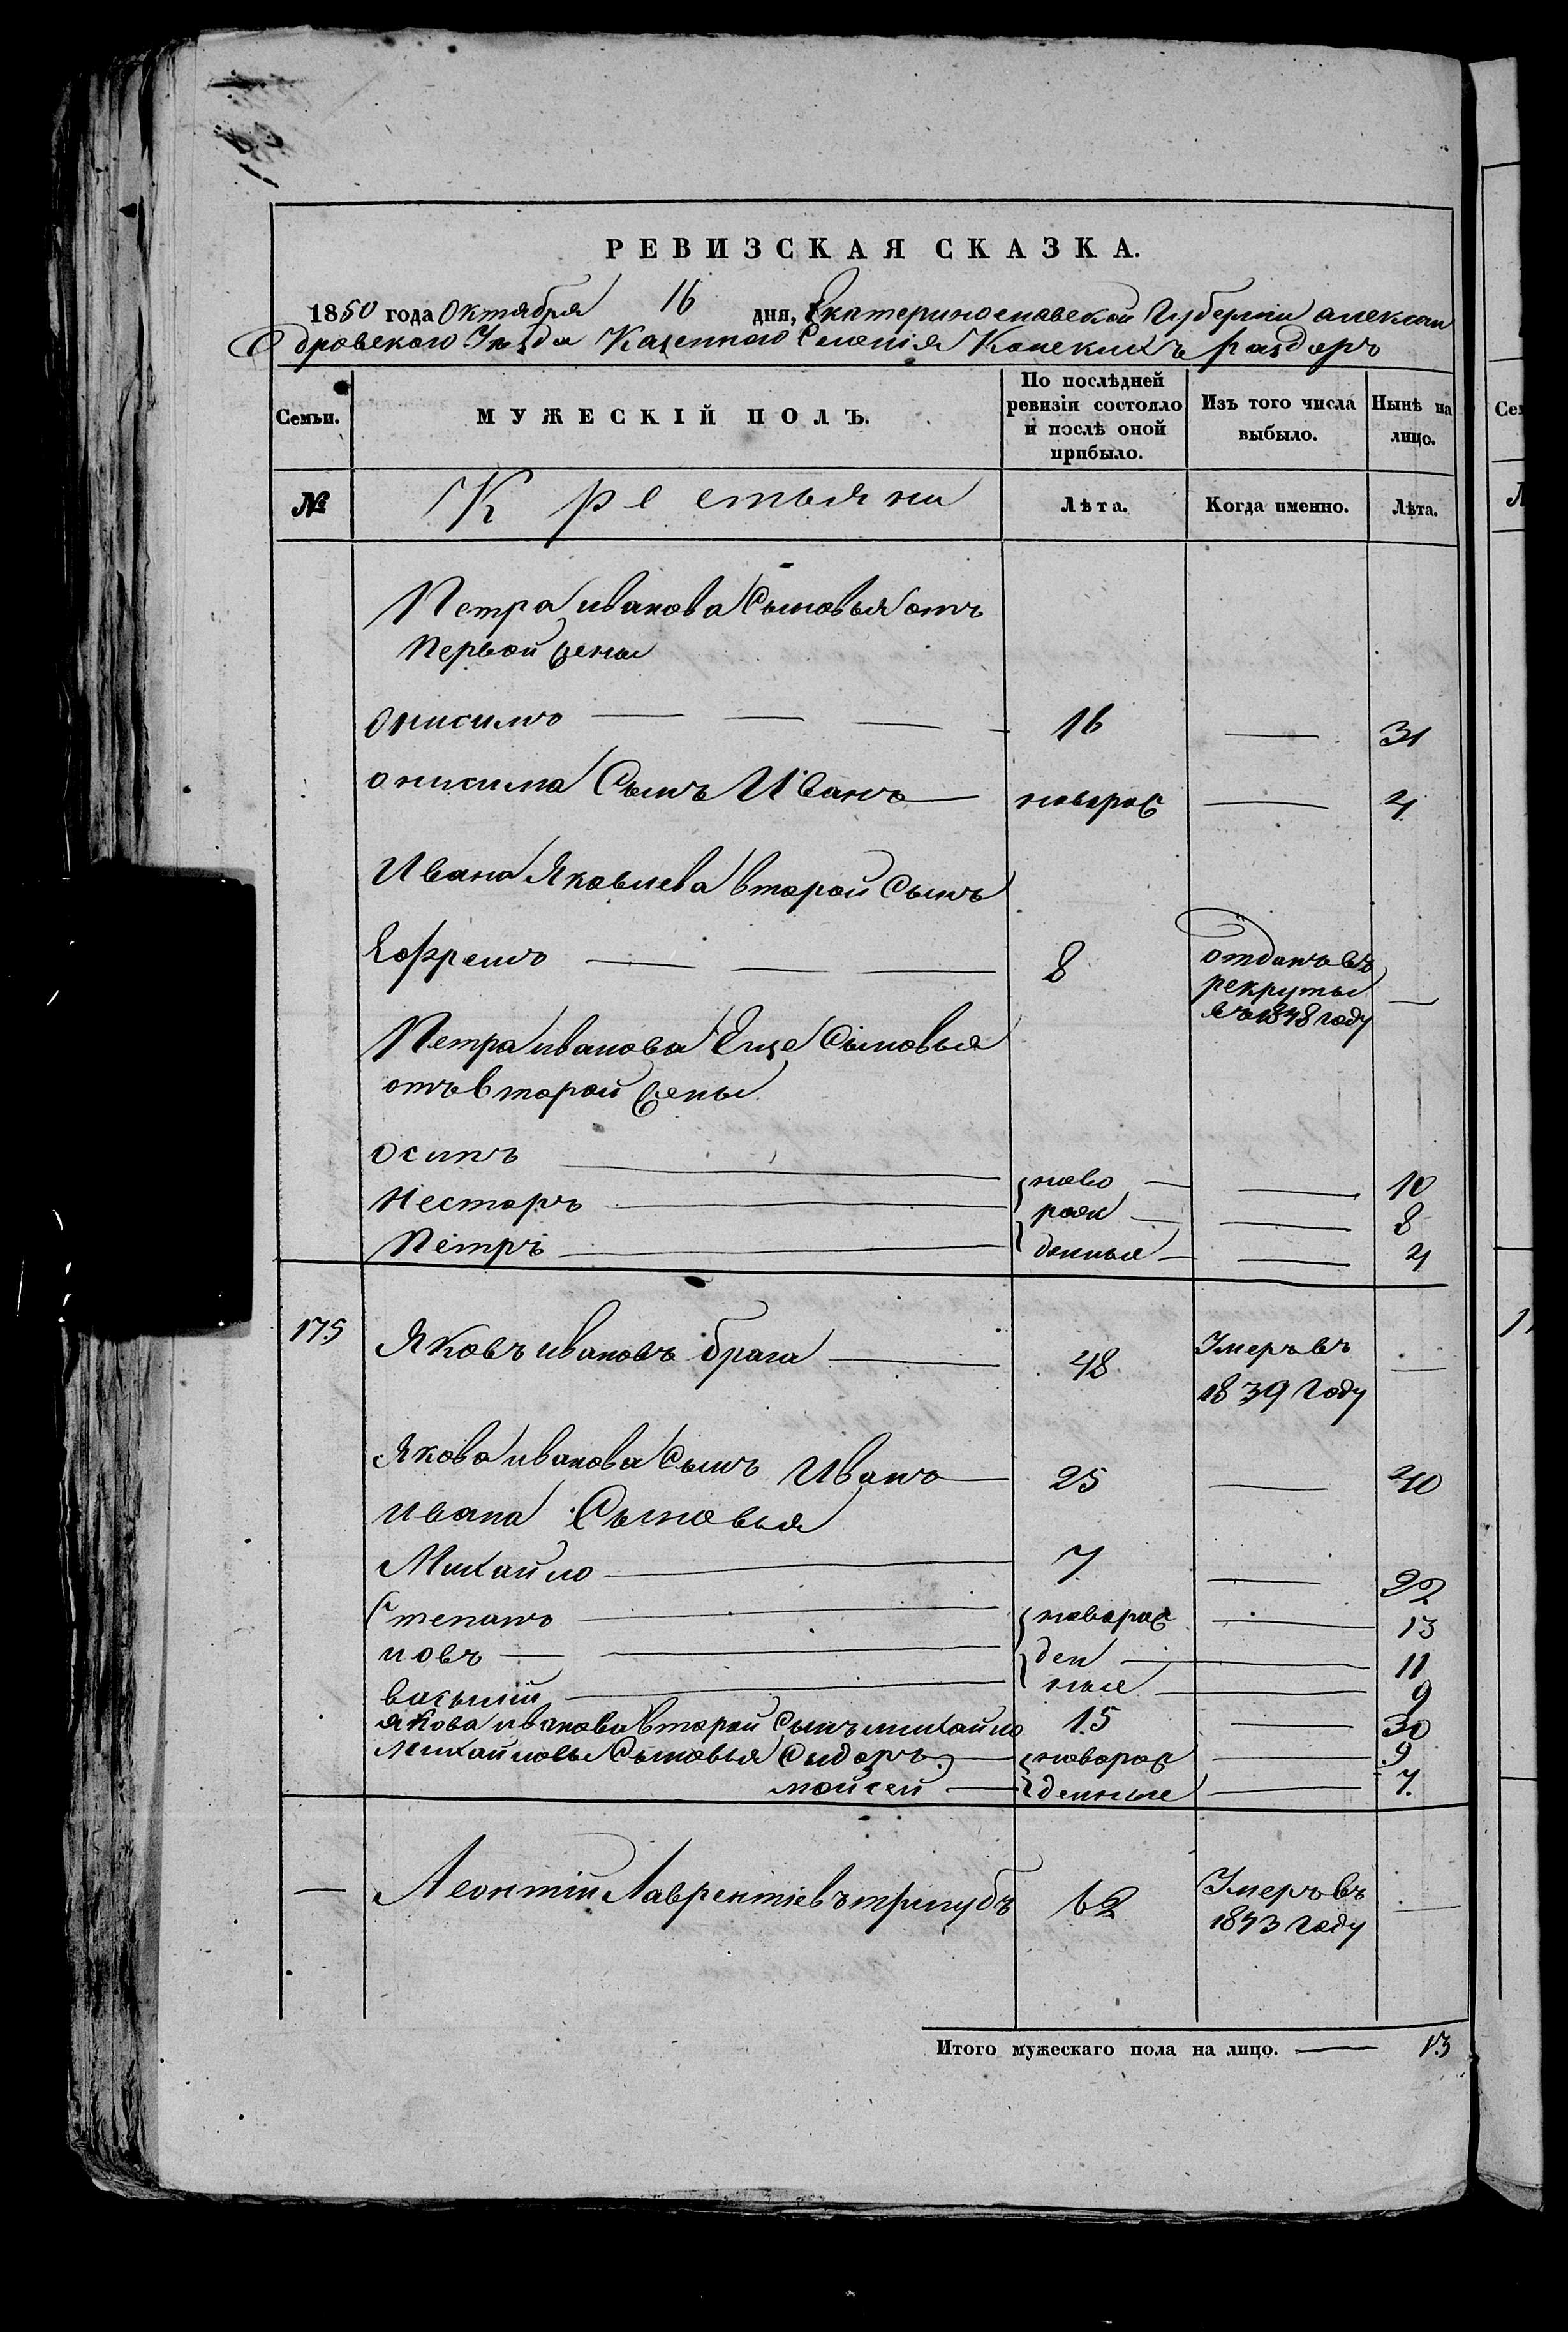 РЕВИЗСКАЯ СКАЗКА.
1850 года Октября 16 дня, Екатеринославской Губернии алексан
дровского Уезда Казенного Селенія Конскихъ раздоръ
Семьи. МУЖЕСКІЙ ПОЛЪ. По послѣдней ревизіи состояло и послѣ оной прибыло. Изъ того числа выбыло. Нынѣ на лицо.
№ Крестьяни Лѣта. Когда именно. Лѣта.
Петра иванова Сыновья отъ
Первой жены
онисимъ — — — 16 — 31
онисима Сынъ Иванъ — новорож — 4
Ивана Яковлева второй Сынъ
Ефремъ — — — 8 отданъ въ рекруты въ 1848 году —
Петра иванова Еще Сыновья
отъ второй жены
осипъ — ново — — 10
Несторъ — рож — — 8
Петръ — денные — — 4
175 Яковъ ивановъ брага — 48 Умеръ въ 1839 Году —
Якова иванова Сынъ Иванъ — 25 — 40
ивана Сыновья
Михайло — 7 — 22
Степанъ — новорож — 13
иовъ — — ден — 11
василій — ные — 9
якова иванова второй Сынъ михайло 15 — 30
Михайловы Сыновья Сидоръ — новорож — 9
мойсей — денные — 7
— Леонтій Лаврентіевъ тригубъ 62 Умеръ въ 1843 Году —
Итого мужескаго пола на лицо. — 13